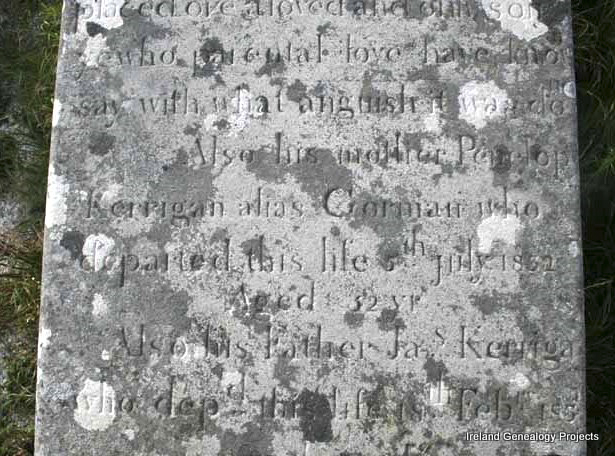 placed o're a loved and only son
ye who parental love have kno
say with what anguish it was do
Also his mother Penelop
Kerrigan alias Gorman who
departed this life 5th july 1832
Aged 52 yr
Also his Father Jas Kerriga
who depd this life 18th Feby 183
Ireland Genealogy Projects